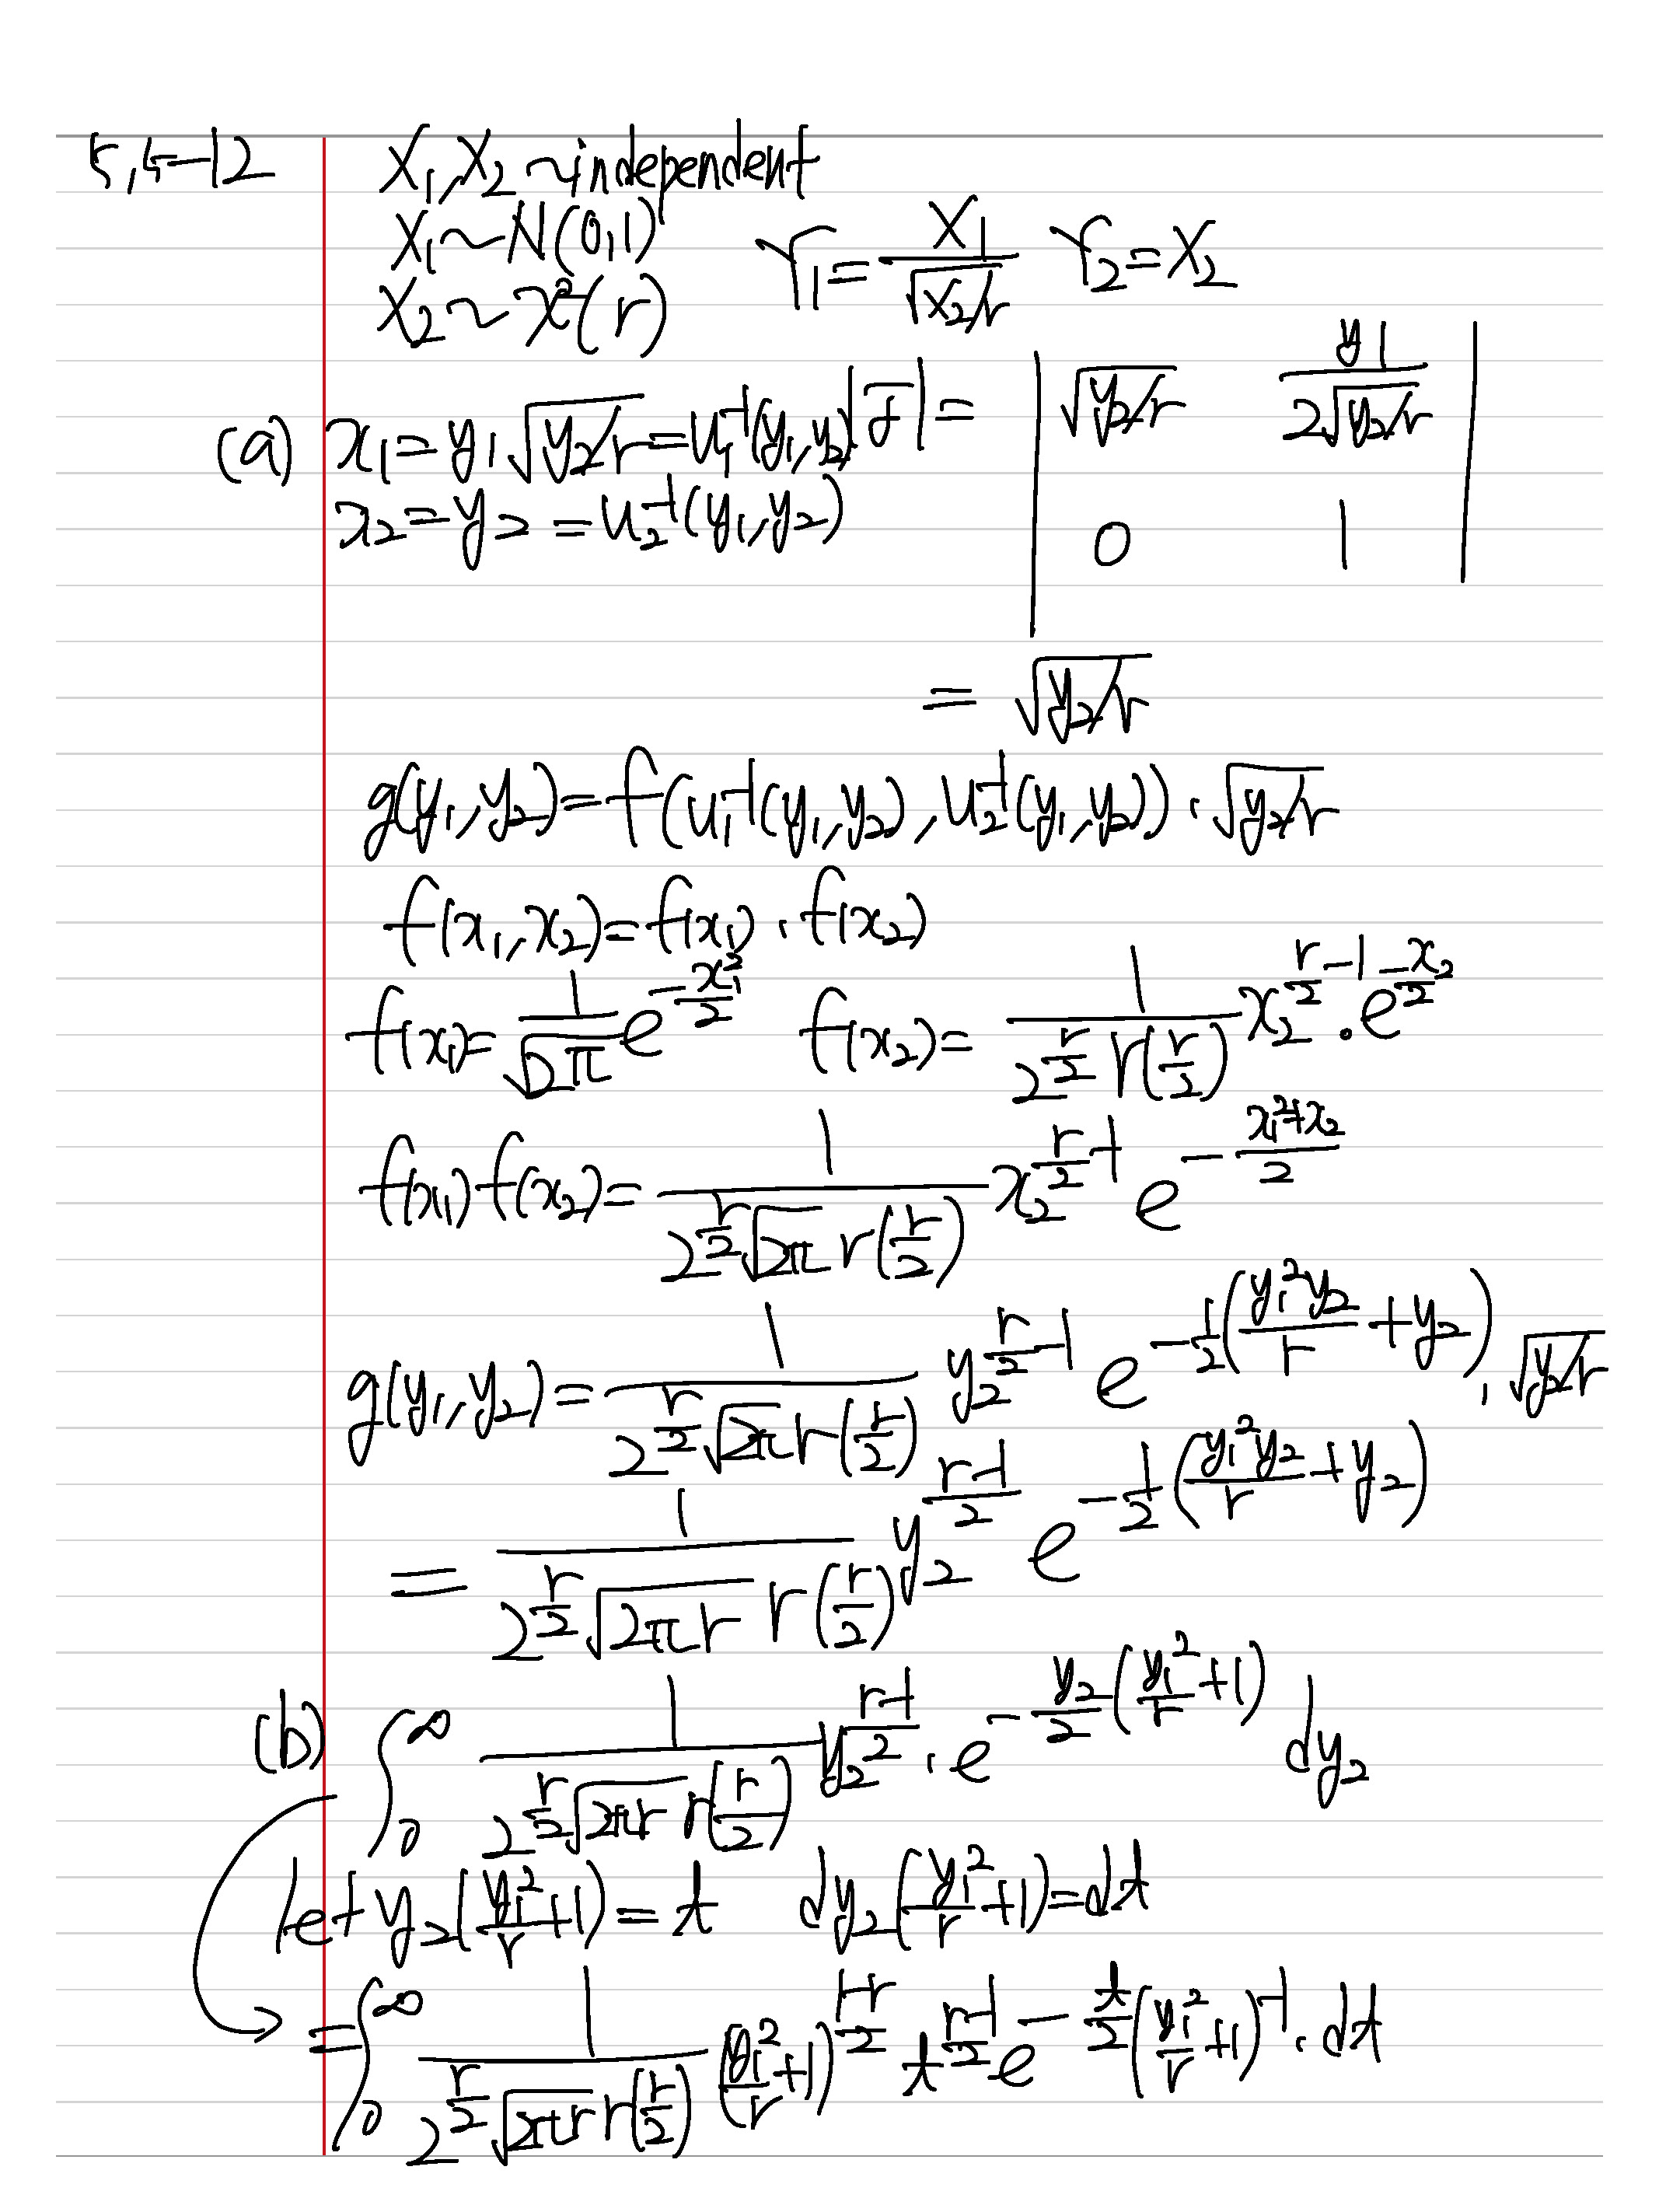 5,4-12 X₁,X₂ ~ independent
X₁ ~ N(0,1) Y₁ = X₁/√(X₂/r) Y₂ = X₂
X₂ ~ χ²(r)
(a) x₁ = y₁√(y₂/r) = u₁⁻¹(y₁,y₂) |J| = | √(y₂/r) y₁/(2√(y₂/r)) |
x₂ = y₂ = u₂⁻¹(y₁,y₂) | 0 1 |
= √(y₂/r)
g(y₁,y₂) = f(u₁⁻¹(y₁,y₂), u₂⁻¹(y₁,y₂)) · √(y₂/r)
f(x₁,x₂) = f(x₁) · f(x₂)
f(x₁) = 1/√(2π) e^(-x₁²/2) f(x₂) = 1/(2^(r/2) Γ(r/2)) x₂^(r/2-1) · e^(-x₂/2)
f(x₁)f(x₂) = 1/(2^(r/2) √(2π) Γ(r/2)) x₂^(r/2-1) e^(-(x₁²+x₂)/2)
g(y₁,y₂) = 1/(2^(r/2) √(2π) Γ(r/2)) y₂^(r/2-1) e^(-1/2(y₁²y₂/r + y₂)) · √(y₂/r)
= 1/(2^(r/2) √(2πr) Γ(r/2)) y₂^((r-1)/2) e^(-1/2(y₁²y₂/r + y₂))
(b) ∫₀^∞ 1/(2^(r/2) √(2πr) Γ(r/2)) y₂^((r-1)/2) · e^(-y₂/2(y₁²/r + 1)) dy₂
let y₂(y₁²/r + 1) = t dy₂(y₁²/r + 1) = dt
= ∫₀^∞ 1/(2^(r/2) √(2πr) Γ(r/2)) (y₁²/r + 1)^((1-r)/2) t^((r-1)/2) e^(-t/2) (y₁²/r + 1)⁻¹ · dt